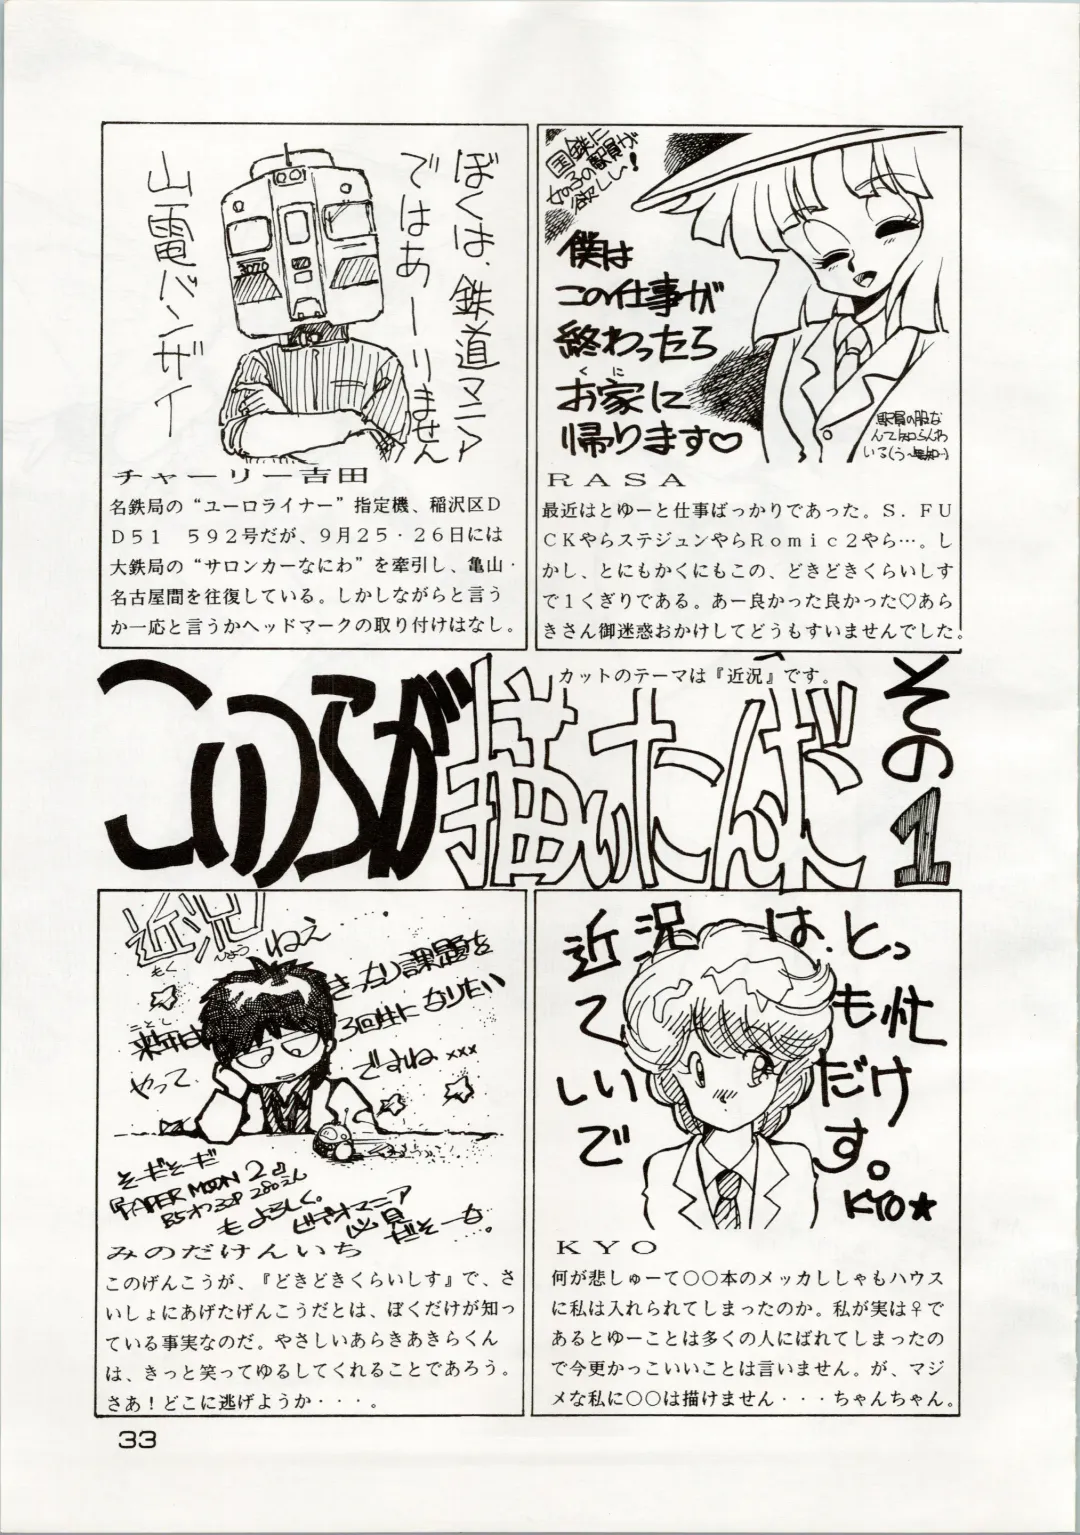 ぼくは、鉄道マニア
ではあーりません
山電バンザイ
3020
チャーリー吉田
名鉄局の“ユーロライナー”指定機、稲沢区D
D51 592号だが、9月25・26日には
大鉄局の“サロンカーなにわ”を牽引し、亀山・
名古屋間を往復している。しかしながらと言う
か一応と言うかヘッドマークの取り付けはなし。
国鉄に
女の子の駅員が
欲しい!
僕は
この仕事が
終わったら
お家に
くに
帰ります♡
駅員の服な
んて知らんわ
RASA
最近はとゆーと仕事ばっかりであった。S.FU
CKやらステジュンやらRomic2やら…。し
かし、とにもかくにもこの、どきどきくらいしす
で1くぎりである。あー良かった良かった♡あら
きさん御迷惑おかけしてどうもすいませんでした。
カットのテーマは『近況』です。
このひとらが描いたんだ
その1
近況
きょう
ねえ
もく
きっちり課題を
ことし
来年は
やって、
3回生になりたい
ですね ×××
そーだそーだ
『PAPER MOON 2』
B5オフ32P 280えん
もよろしく。
ビデオマニア
必見
だそーな。
みのだけんいち
このげんこうが、『どきどきくらいしす』で、さ
いしょにあげたげんこうだとは、ぼくだけが知っ
ている事実なのだ。やさしいあらきあきらくん
は、きっと笑ってゆるしてくれることであろう。
さあ!どこに逃げようか・・・。
近況は、とっ
ても忙
しいだけ
です。
KYO★
KYO
何が悲しゅーて〇〇本のメッカししゃもハウス
に私は入れられてしまったのか。私が実は♀で
あるとゆーことは多くの人にばれてしまったの
で今更かっこいいことは言いません。が、マジ
メな私に〇〇は描けません・・・ちゃんちゃん。
33